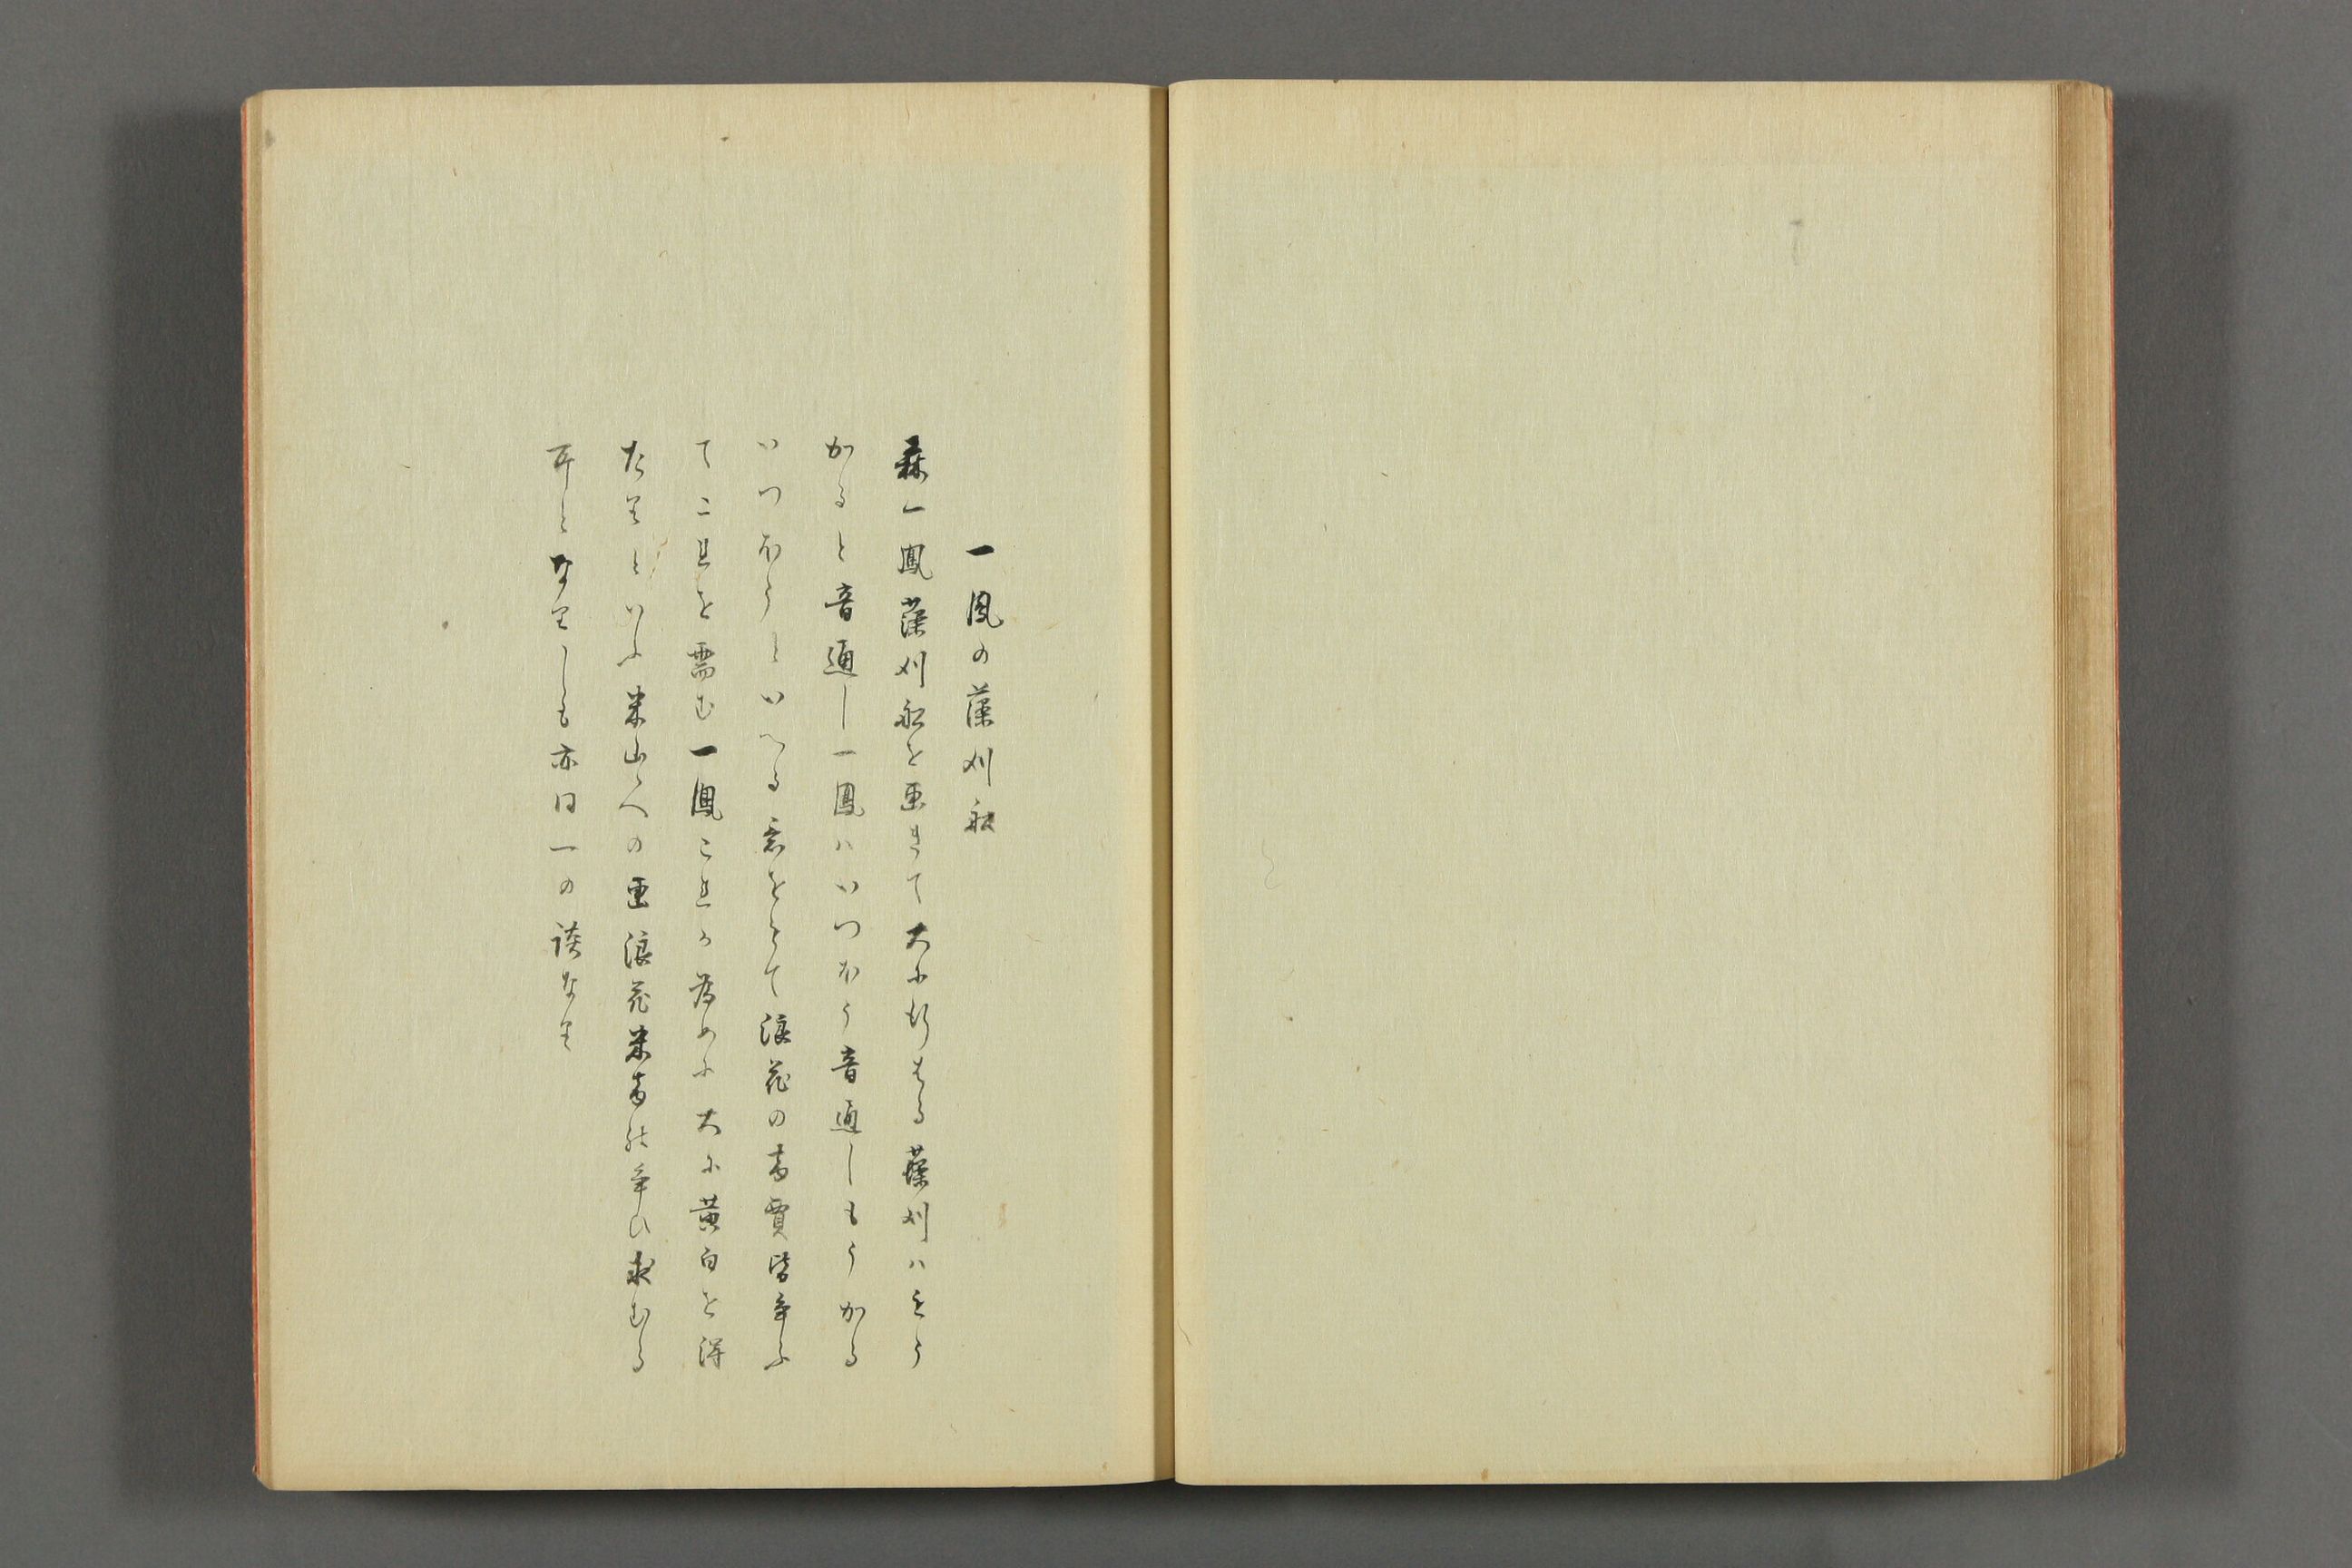 一鳳の藻刈舩
森一鳳藻刈舩を画きて大に行はる藻刈ハもう
かると音通し一鳳ハいつほう音通しもうかる
いつほうといへる意をとて浪花の商賈皆争ふ
てこれを需む一鳳これか為めに大に黄白を得
たりといふ米山人の画浪花米商の争ひ求むる
所となりしも亦同一の談なり